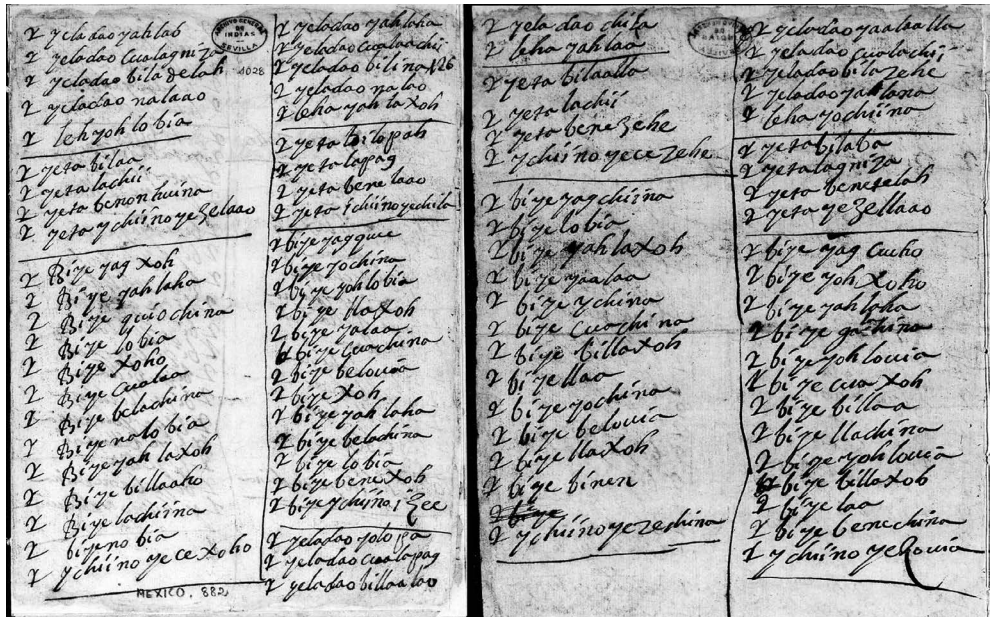 2 yeladao yahlab
2 yeladao Cualagniza
2 yeladao bila de lah
2 yeladao nalaao
2 leh yoh lo bia
2 yeta bilaa
2 yeta lachii
2 yeta benonhuina
2 yeta ychiino ye zelaao
2 Biye yag xoh
2 Biye yahlaha
2 Biye guiochina
2 Biye lobia
2 Biye xoho
2 Biye Cualaa
2 Biye belachina
2 Biye nalo bia
2 Biye yah laxoh
2 Biye billaaho
2 Biye lachiina
2 biye no bia
2 ychiino ye ce xoho
MEXICO. 882
ARCHIVO GENERAL
DE
INDIAS
SEVILLA
1028
2 yeladao yahlaha
2 yeladao Cualaachii
2 yeladao bilina
126
2 yeladao nalao
2 leha yah laxoh
2 yeta bilopah
2 yeta lapag
2 yeta bene laao
2 yeta ichiino yechila
2 biye yagquee
2 biye yochina
2 biye yohlobia
2 biye llaxoh
2 biye yalaa
2 biye Cuachina
2 biye belouia
2 biye xoh
2 biye yah laha
2 biye belachina
2 biye lobia
2 biye benexoh
2 biye ychiino i zee
2 yeladao yolopa
2 yeladao cualapag
2 yeladao billaalao
2 yeladao chila
2 leha yahlaa
2 yeta bilaalla
2 yeta lachii
2 yeta bene zehe
2 ychiino yece zehe
2 biye yagchiina
2 biye lobia
2 biye yah laxoh
2 biye yaalaa
2 biye ychina
2 biye Cuachina
2 biye billaxoh
2 biye llaa
2 biye yochina
2 biye belouia
2 biye llaxoh
2 biye binen
2 biye
2 ychiino yezechina
2 yeladao yaalaalla
2 yeladao Cualachii
2 yeladao bilazehe
2 yeladao yahlana
2 leha yochiina
2 yeta bilaba
2 yeta lagniza
2 yeta benetelah
2 yeta ye zellaao
2 biye yag Cucho
2 biye yoh xoho
2 biye yahlaha
2 biye
2 biye yohlouia
2 biye cua xoh
2 biye billaa
2 biye llachina
2 biye yohlouia
2 biye billaxoh
2 biye laa
2 biye benechina
2 ychiino yelouia